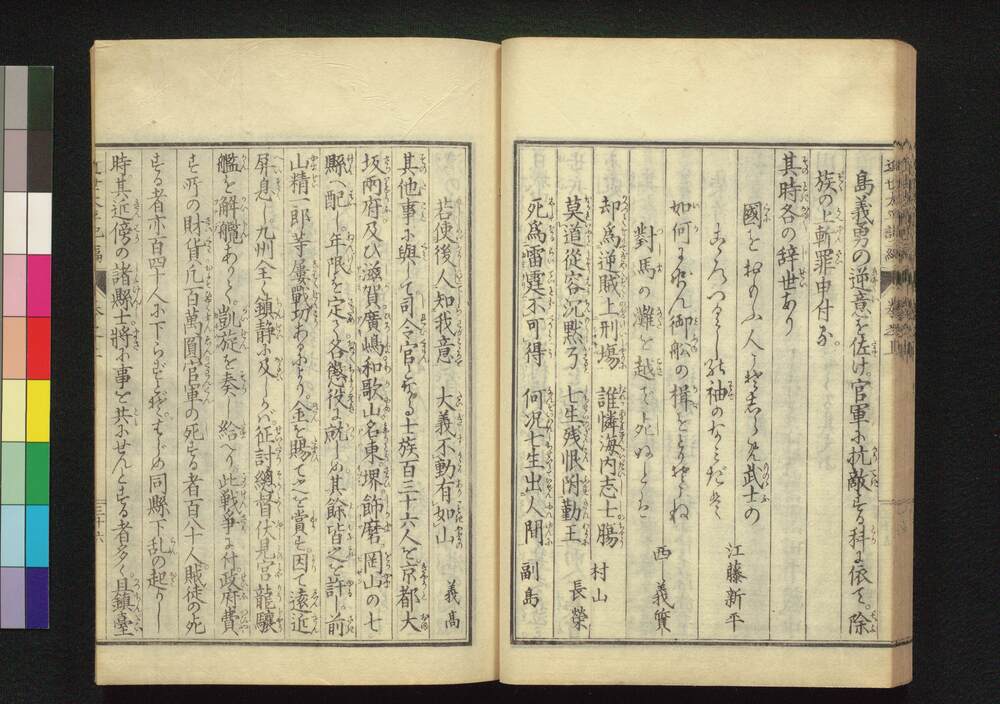 島義勇の逆意を佐け。官軍に抗敵する科に依て。除
族の上斬罪申付る。
其時各の辞世あり
國をおもふ人こそしらね武士の
こゝろつくしの袖のなみだを
江藤新平
如何にせん御舩の檝をとりもあへね
對馬の灘を越へ
西義質
却爲逆賊上刑塲 誰憐海内志士膓 村山
莫道從容沉黙了 七生残恨附勤王 長榮
死爲雷霆不可得 何况七生出人間 副島
若使後人知我意 大義不動有如山 義高
其他事に與して司令官となる士族百三十六人を京都大
坂両府及び滋賀廣嶋和歌山名東堺飾磨。岡山の七
縣へ配し。年限を定て各懲役に就しめ其餘皆之を許し。前
山精一郎等屢戰功あるにより。金を賜て之を賞す因て遠近
屏息し。九州全く鎮静に及しかバ征討總督伏見宮龍驤
艦を解纜ありて。凱旋を奏し給へり此戰争に付。政府費
す所の財貨凡一百萬圓官軍の死する者百八十人賊徒の死
する者亦百四十人に下らずとぞ。はじめ同縣下乱の起りし
時其近傍の諸縣士將に事を共にせんとする者多く。且鎮臺
三十六